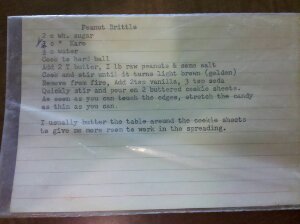 Peanut Brittle
2 c wh. sugar
c " Karo
c water
Cook to hard ball
Add 2 T butter, 1 lb raw peanuts & some salt
Cook and stir until it turns light brown (golden)
Remove from fire, Add 2tsp vanilla, 3 tsp soda
Quickly stir and pour on 2 buttered cookie sheets.
As soon as you can touch the edges, stretch the candy
as thin as you can.
I usually butter the table around the cookie sheets
to give me more room to work in the spreading.